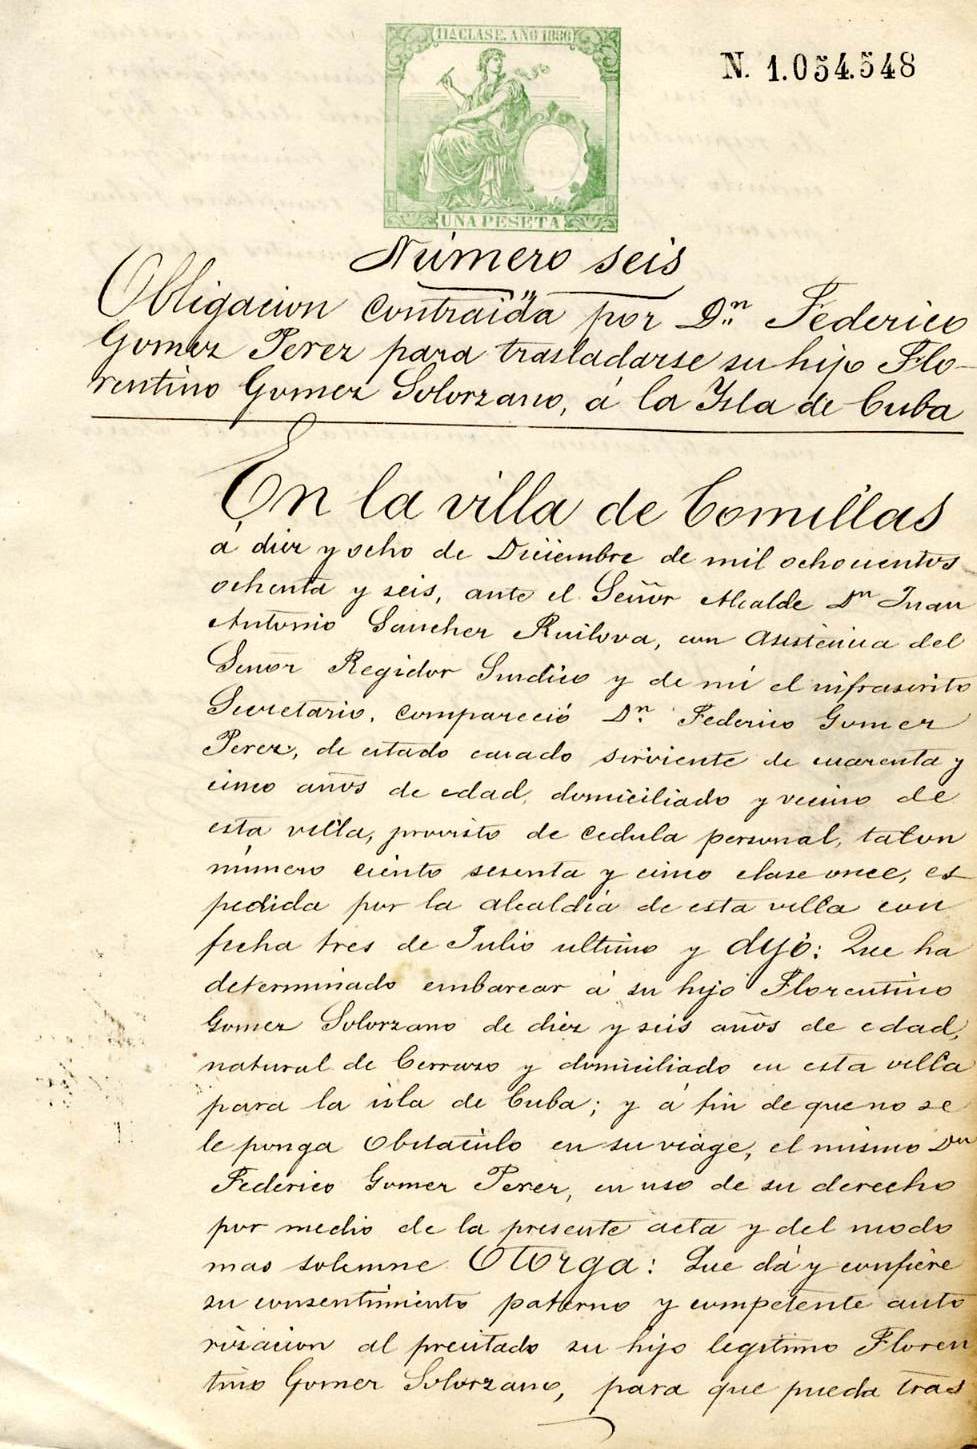 11ª CLASE. AÑO 1886
N. 1.054.548
UNA PESETA
Número seis
Obligacion contraida por Dn. Federico
Gomez Perez para trasladarse su hijo Flo-
rentino Gomez Solorzano, á la Isla de Cuba
En la villa de Comillas
á diez y ocho de Diciembre de mil ochocientos
ochenta y seis, ante el Señor Alcalde Dn Juan
Antonio Sanchez Ruilova, con asistencia del
Señor Regidor Sindico y de mi el infrascrito
Secretario, compareció Dn. Federico Gomez
Perez, de estado casado sirviente de cuarenta y
cinco años de edad, domiciliado y vecino de
esta villa, provisto de cedula personal, talon
número ciento sesenta y cinco clase once, es
pedida por la alcaldia de esta villa con
fecha tres de Julio ultimo y dijó: Que ha
determinado embarcar á su hijo Florentino
Gomez Solorzano de diez y seis años de edad,
natural de Cerrazo y domiciliado en esta villa
para la isla de Cuba; y á fin de que no se
le ponga obstaculo en su viage, el mismo Dn
Federico Gomez Perez, en uso de su derecho
por medio de la presente acta y del modo
mas solemne Otorga: Que dá y confiere
su consentimiento paterno y competente auto
rizacion al precitado su hijo legitimo Floren
tino Gomez Solorzano, para que pueda tras